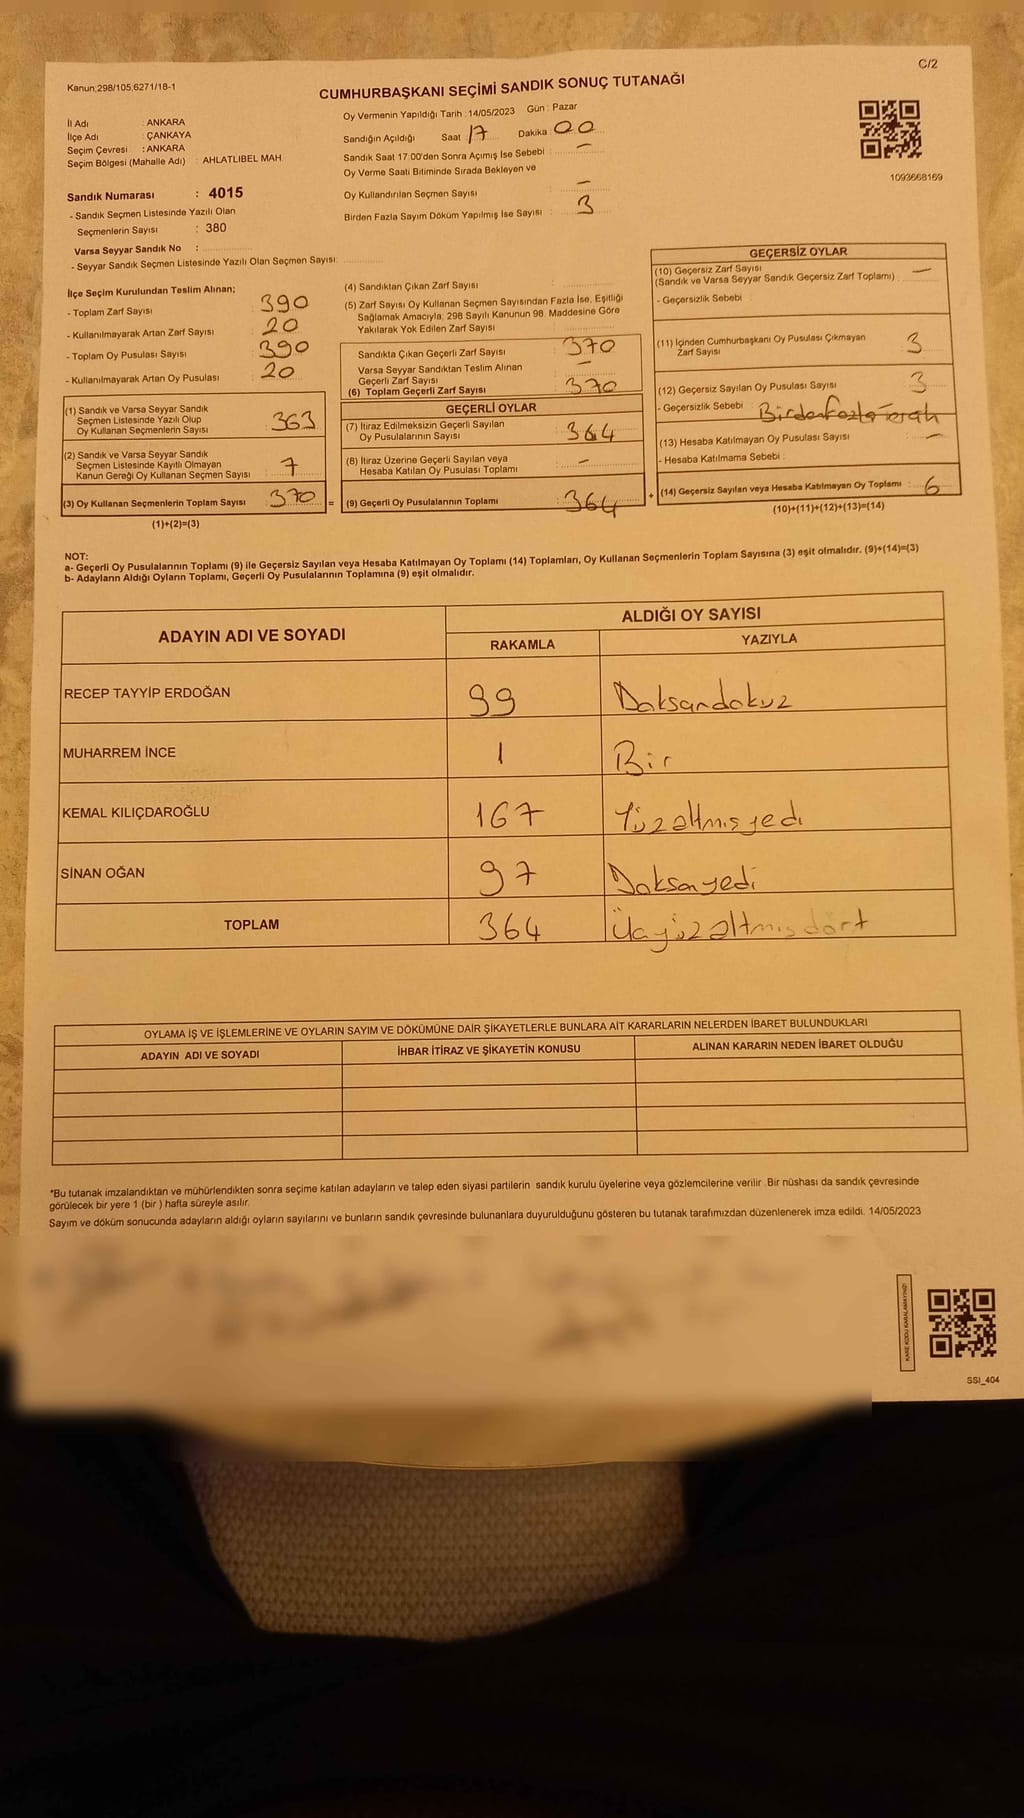 C/2
Kanun:298/105;6271/18-1
CUMHURBAŞKANI SEÇİMİ SANDIK SONUÇ TUTANAĞI
İl Adı : ANKARA
İlçe Adı : ÇANKAYA
Seçim Çevresi : ANKARA
Seçim Bölgesi (Mahalle Adı) : AHLATLIBEL MAH.
Sandık Numarası : 4015
- Sandık Seçmen Listesinde Yazılı Olan
Seçmenlerin Sayısı : 380
Varsa Seyyar Sandık No :
- Seyyar Sandık Seçmen Listesinde Yazılı Olan Seçmen Sayısı:
Oy Vermenin Yapıldığı Tarih : 14/05/2023 Gün : Pazar
Sandığın Açıldığı Saat 17 Dakika 00
Sandık Saat 17:00'den Sonra Açımış İse Sebebi : -
Oy Verme Saati Bitiminde Sırada Bekleyen ve
Oy Kullandırılan Seçmen Sayısı : -
Birden Fazla Sayım Döküm Yapılmış İse Sayısı : 3
1093668169
İlçe Seçim Kurulundan Teslim Alınan;
- Toplam Zarf Sayısı 390
- Kullanılmayarak Artan Zarf Sayısı 20
- Toplam Oy Pusulası Sayısı 390
- Kullanılmayarak Artan Oy Pusulası 20
(1) Sandık ve Varsa Seyyar Sandık
Seçmen Listesinde Yazılı Olup
Oy Kullanan Seçmenlerin Sayısı 363
(2) Sandık ve Varsa Seyyar Sandık
Seçmen Listesinde Kayıtlı Olmayan
Kanun Gereği Oy Kullanan Seçmen Sayısı 7
(3) Oy Kullanan Seçmenlerin Toplam Sayısı 370 =
(1)+(2)=(3)
(4) Sandıktan Çıkan Zarf Sayısı :
(5) Zarf Sayısı Oy Kullanan Seçmen Sayısından Fazla İse, Eşitliği
Sağlamak Amacıyla, 298 Sayılı Kanunun 98. Maddesine Göre
Yakılarak Yok Edilen Zarf Sayısı
Sandıkta Çıkan Geçerli Zarf Sayısı : 370
Varsa Seyyar Sandıktan Teslim Alınan
Geçerli Zarf Sayısı -
(6) Toplam Geçerli Zarf Sayısı : 370
GEÇERLİ OYLAR
(7) İtiraz Edilmeksizin Geçerli Sayılan
Oy Pusulalarının Sayısı : 364
(8) İtiraz Üzerine Geçerli Sayılan veya
Hesaba Katılan Oy Pusulası Toplamı : -
(9) Geçerli Oy Pusulalarının Toplamı : 364 +
GEÇERSİZ OYLAR
(10) Geçersiz Zarf Sayısı
(Sandık ve Varsa Seyyar Sandık Geçersiz Zarf Toplamı) : -
- Geçersizlik Sebebi :
(11) İçinden Cumhurbaşkanı Oy Pusulası Çıkmayan
Zarf Sayısı : 3
(12) Geçersiz Sayılan Oy Pusulası Sayısı : 3
- Geçersizlik Sebebi : Birden Fazla Tercih
(13) Hesaba Katılmayan Oy Pusulası Sayısı : -
- Hesaba Katılmama Sebebi :
(14) Geçersiz Sayılan veya Hesaba Katılmayan Oy Toplamı : 6
(10)+(11)+(12)+(13)=(14)
NOT:
a- Geçerli Oy Pusulalarının Toplamı (9) ile Geçersiz Sayılan veya Hesaba Katılmayan Oy Toplamı (14) Toplamları, Oy Kullanan Seçmenlerin Toplam Sayısına (3) eşit olmalıdır. (9)+(14)=(3)
b- Adayların Aldığı Oyların Toplamı, Geçerli Oy Pusulalarının Toplamına (9) eşit olmalıdır.
ADAYIN ADI VE SOYADI ALDIĞI OY SAYISI
RAKAMLA YAZIYLA
RECEP TAYYİP ERDOĞAN 99 Doksandokuz
MUHARREM İNCE 1 Bir
KEMAL KILIÇDAROĞLU 167 Yüzaltmışyedi
SİNAN OĞAN 97 Doksanyedi
TOPLAM 364 Üçyüzaltmışdört
OYLAMA İŞ VE İŞLEMLERİNE VE OYLARIN SAYIM VE DÖKÜMÜNE DAİR ŞİKAYETLERLE BUNLARA AİT KARARLARIN NELERDEN İBARET BULUNDUKLARI
ADAYIN ADI VE SOYADI İHBAR İTİRAZ VE ŞİKAYETİN KONUSU ALINAN KARARIN NEDEN İBARET OLDUĞU
*Bu tutanak imzalandıktan ve mühürlendikten sonra seçime katılan adayların ve talep eden siyasi partilerin sandık kurulu üyelerine veya gözlemcilerine verilir. Bir nüshası da sandık çevresinde
görülecek bir yere 1 (bir ) hafta süreyle asılır.
Sayım ve döküm sonucunda adayların aldığı oyların sayılarını ve bunların sandık çevresinde bulunanlara duyurulduğunu gösteren bu tutanak tarafımızdan düzenlenerek imza edildi. 14/05/2023
KARE KODU KARALAMAYINIZ!
SSI_404